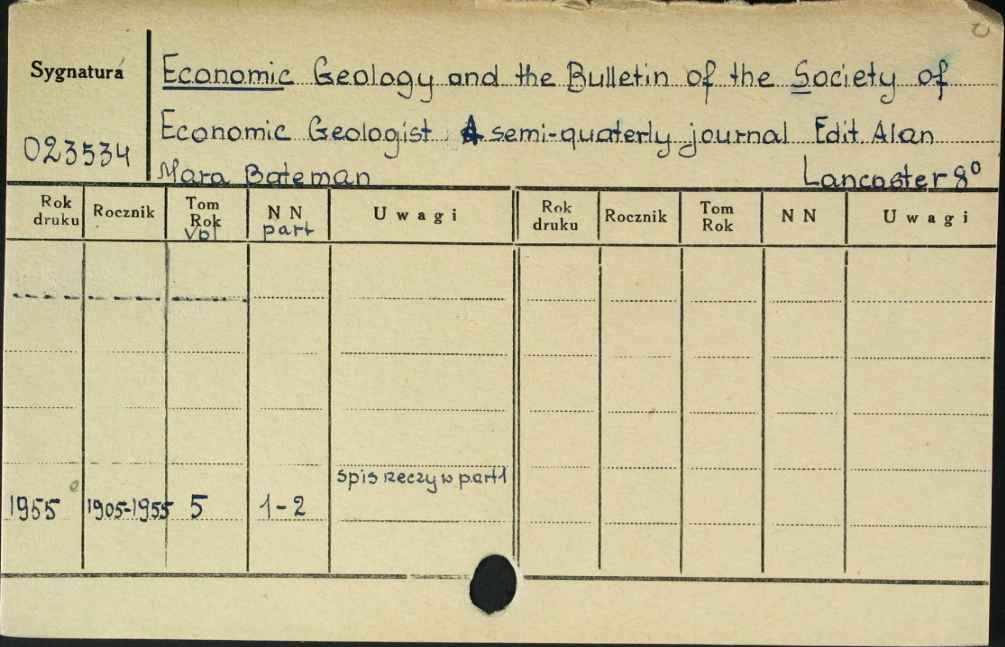 Sygnatura
023534
Economic Geology and the Bulletin of the Society of
Economic Geologist A semi-quaterly journal Edit. Alan
Mara Bateman Lancaster 8°
Rok druku Rocznik Tom Rok vol N N part Uwagi Rok druku Rocznik Tom Rok N N Uwagi
spis rzeczy w part 1
1955 1905-1955 5 1-2